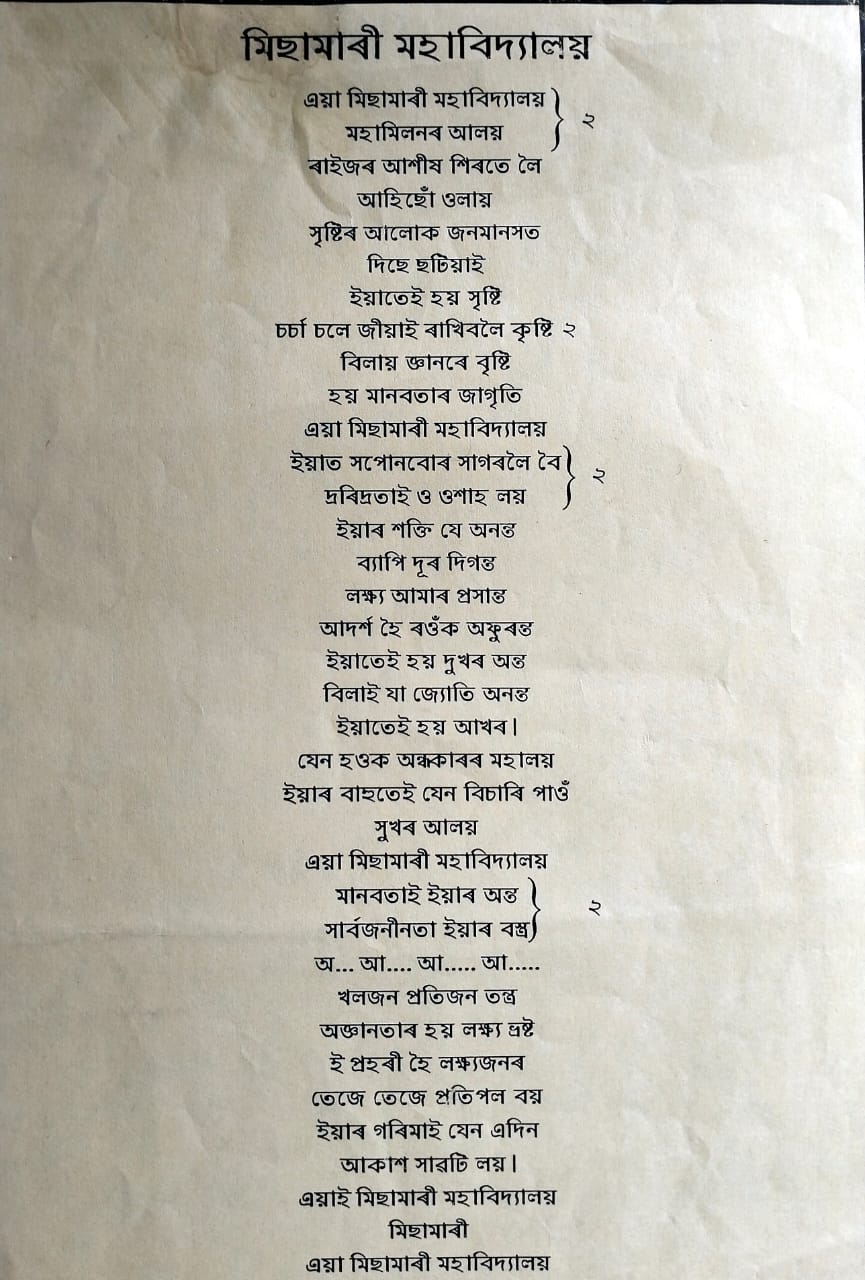 মিছামাৰী মহাবিদ্যালয়
এয়া মিছামাৰী মহাবিদ্যালয়
মহামিলনৰ আলয় } ২
ৰাইজৰ আশীষ শিৰতে লৈ
আহিছোঁ ওলায়
সৃষ্টিৰ আলোক জনমানসত
দিছে ছটিয়াই
ইয়াতেই হয় সৃষ্টি
চৰ্চা চলে জীয়াই ৰাখিবলৈ কৃষ্টি ২
বিলায় জ্ঞানৰে বৃষ্টি
হয় মানবতাৰ জাগৃতি
এয়া মিছামাৰী মহাবিদ্যালয়
ইয়াত সপোনবোৰ সাগৰলৈ বৈ
দ্ৰৰিদ্ৰতাই ও ওশাহ লয় } ২
ইয়াৰ শক্তি যে অনন্ত
ব্যাপি দূৰ দিগন্ত
লক্ষ্য আমাৰ প্ৰসান্ত
আদৰ্শ হৈ ৰওঁক অফুৰন্ত
ইয়াতেই হয় দুখৰ অন্ত
বিলাই যা জ্যোতি অনন্ত
ইয়াতেই হয় আখৰ।
যেন হওক অন্ধকাৰৰ মহালয়
ইয়াৰ বাহুতেই যেন বিচাৰি পাওঁ
সুখৰ আলয়
এয়া মিছামাৰী মহাবিদ্যালয়
মানবতাই ইয়াৰ অন্ত
সাৰ্বজনীনতা ইয়াৰ বস্ত্ৰ } ২
অ... আ.... আ..... আ.....
খলজন প্ৰতিজন তন্ত্ৰ
অজ্ঞানতাৰ হয় লক্ষ্য ভ্ৰষ্ট
ই প্ৰহৰী হৈ লক্ষ্যজনৰ
তেজে তেজে প্ৰতিপল বয়
ইয়াৰ গৰিমাই যেন এদিন
আকাশ সাৱটি লয়।
এয়াই মিছামাৰী মহাবিদ্যালয়
মিছামাৰী
এয়া মিছামাৰী মহাবিদ্যালয়